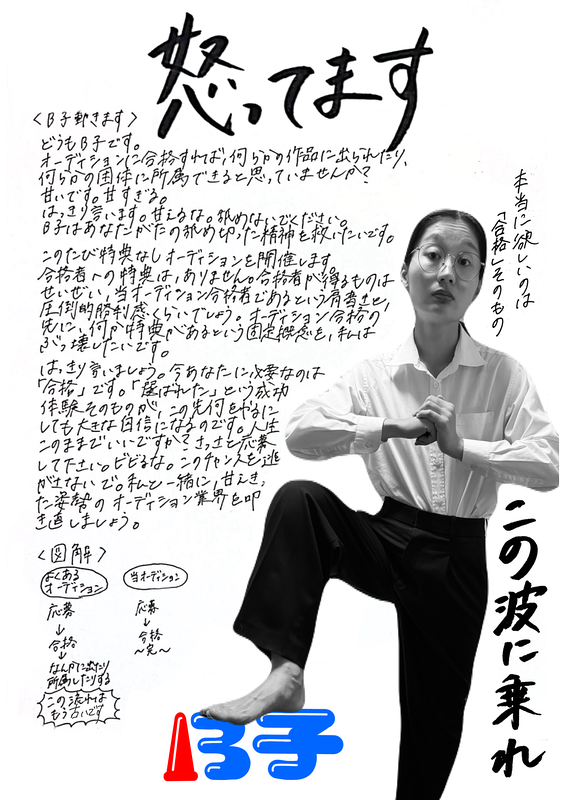 怒ってます
＜B子動きます＞
どうもB子です。
オーディションに合格すれば、何らかの作品に出られたり、
何らかの団体に所属できると思っていませんか？
甘いです。甘すぎる。
はっきり言います。甘えるな。舐めないでください。
B子はあなたがたの舐め切った精神を救いたいです。
このたび特典なしオーディションを開催します
合格者への特典は、ありません。合格者が得るものは
せいぜい、当オーディション合格者であるという肩書きと、
圧倒的勝利感くらいでしょう。オーディション合格の
先に、何か特典があるという固定概念を、私は
ぶっ壊したいです。
はっきり言いましょう。今あなたに必要なのは
「合格」です。「選ばれた」という成功
体験そのものが、この先何をやるに
しても大きな自信になるのです。人生
このままでいいですか？さっさと応募
して下さい。ビビるな。このチャンスを逃
がさないで。私と一緒に、甘えき
た姿勢のオーディション業界を叩
き直しましょう。
本当に欲しいのは
「合格」そのもの
この波に乗れ
＜図解＞
よくある
オーディション
応募
↓
合格
↓
なんかに出たり
所属したりする
この流れは
もう古いです
当オーディション
応募
↓
合格
〜完〜
B子